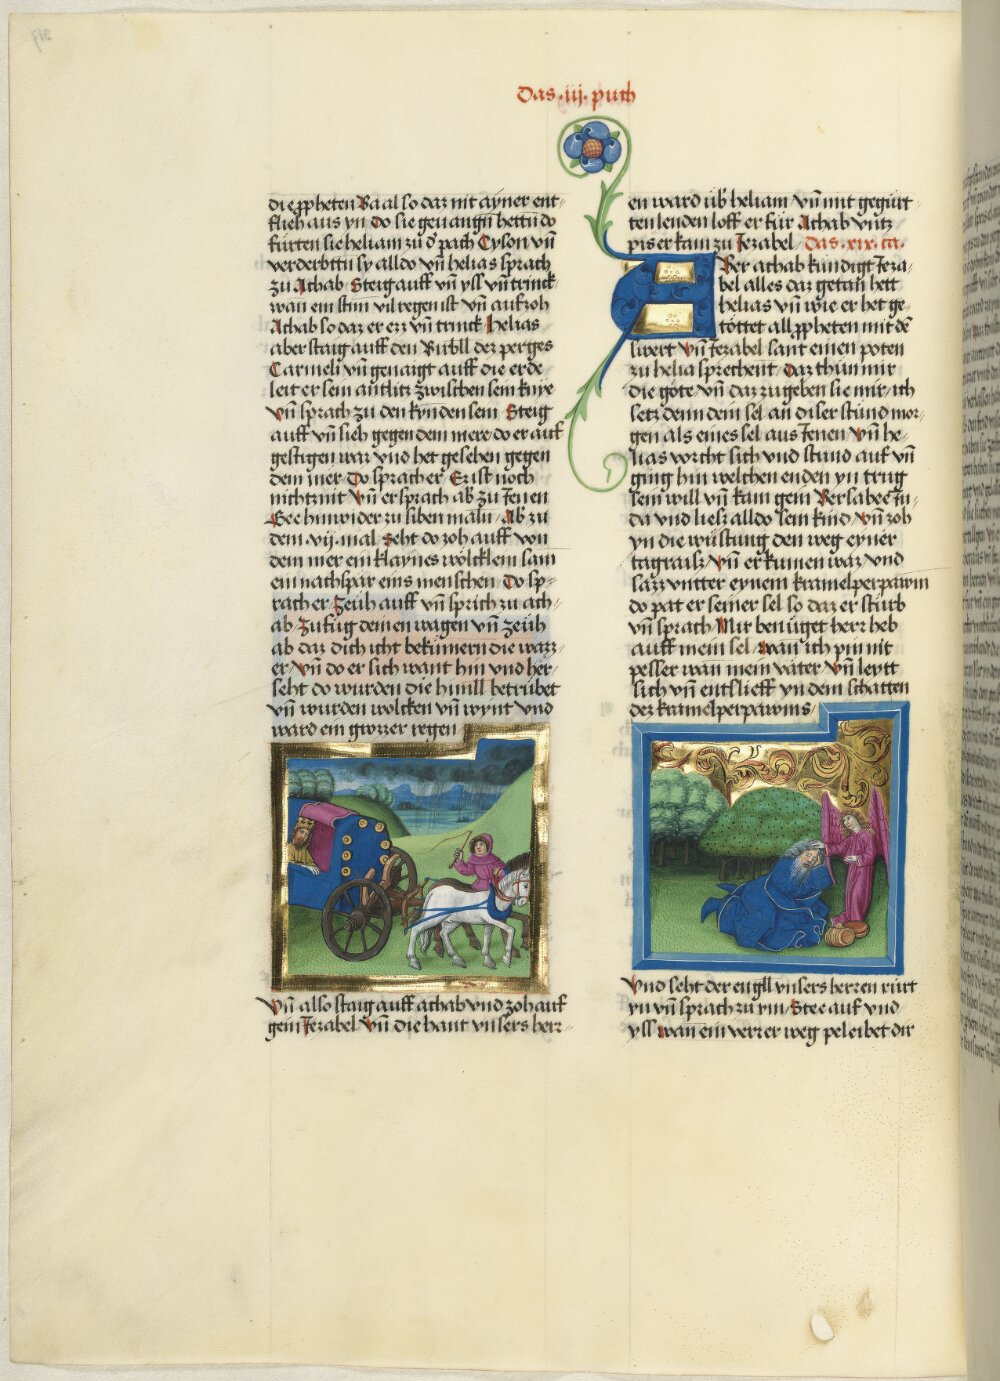 Das .iij. puch
die ppheten Baal so daz nit ayner ent⸗
flieh aus yn Do sie geuangn̄ hettn̄ do
fürten sie heliam zu d' pach Cyson vn̄
verderbttn̄ sy alldo vn̄ helias sprach
zu Achab Steig auff vn̄ yss vn̄ trinck
wan ein stim vil regen ist vn̄ auf zoh
Achab so daz er ezz vn̄ trinck Helias
aber staig auff den Bühll dez perges
Carmeli vn̄ genaigt auff die erde
leit er sein antlitz zwischen sein knye
Vn̄ sprach zu den kynden sein Steig
auff vn̄ sieh gegen dem mere do er auf
gestigen waz vnd het gesehen gegen
dem mer Do sprach er Es ist noch
nichtznit Vn̄ er sprach ab' zu Jenen
Gee hinwider zu siben maln̄ Ab' zu
dem .vij. mal Seht do zoh auff von
dem mer ein klaynes wölcklein sam
ein nachspar eins menschen Do sp⸗
rach er Zeüh auff vn̄ sprich zu ach⸗
ab Zufüg deinen wagen vn̄ zeüh
ab daz dich icht bekümern die wazz⸗
er Vn̄ do er sich want hin vnd her⸗
seht do wurden die himll betrübet
vn̄ wurden wolcken vn̄ wynt vnd
ward ein grozzer regen
Vn̄ also staig auff achab vnd zoh auf
gein Jezabel Vn̄ die hant vnsers herr⸗
en ward üb' heliam Vn̄ mit gegürt
ten lenden loff er für Achab vntz
pis er kam zu Jezabel Das .xix. ca.
Ber achab kündigt Jeza⸗
bel alles daz getan hett
helias vn̄ wie er het ge⸗
töttet all ppheten mit dē
swert Vn̄ Jezabel sant einen poten
zu helia sprechent Daz thün mir
die göte vn̄ daz zugeben sie mir ich
setz denn dein sel an diser stund mor⸗
gen als eines sel aus Jenen Vn̄ he⸗
lias vorcht sich vnd stund auf vn̄
ging hin welchen enden yn trug
sein will vn̄ kam gein Bersabee Ju⸗
da vnd liesz alldo sein kind Vn̄ zoh
yn die wüstung den weg eyner
tagraisz Vn̄ er kumen waz vnd
sazz vntter eynem kramelperpawm
do pat er seiner sel so daz er stürb
vn̄ sprach Mir benüget herr heb
auff mein sel wan ich pin nit
pesser wan mein väter Vn̄ leytt
sich vn̄ entslieff yn dem schatten
dez kramelperpawms
Vnd seht der engll vnsers herren rürt
yn vn̄ sprach zu ym Stee auf vnd
yss wan ein verrer weg peleibet dir